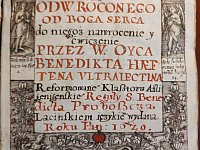 ODWROCONEGO
OD BOGA SERCA
do niegoż nawrocenie y
ćwiczenie
PRZEZ W. OYCA
BENEDIKTA HÆF
TENA ULTRAIECTINA
Reformowanẏ Klasztoru
Reguły S. Bene
dicta Proboszcza
Łacinskiem ięzykie wydana
Roku Pan